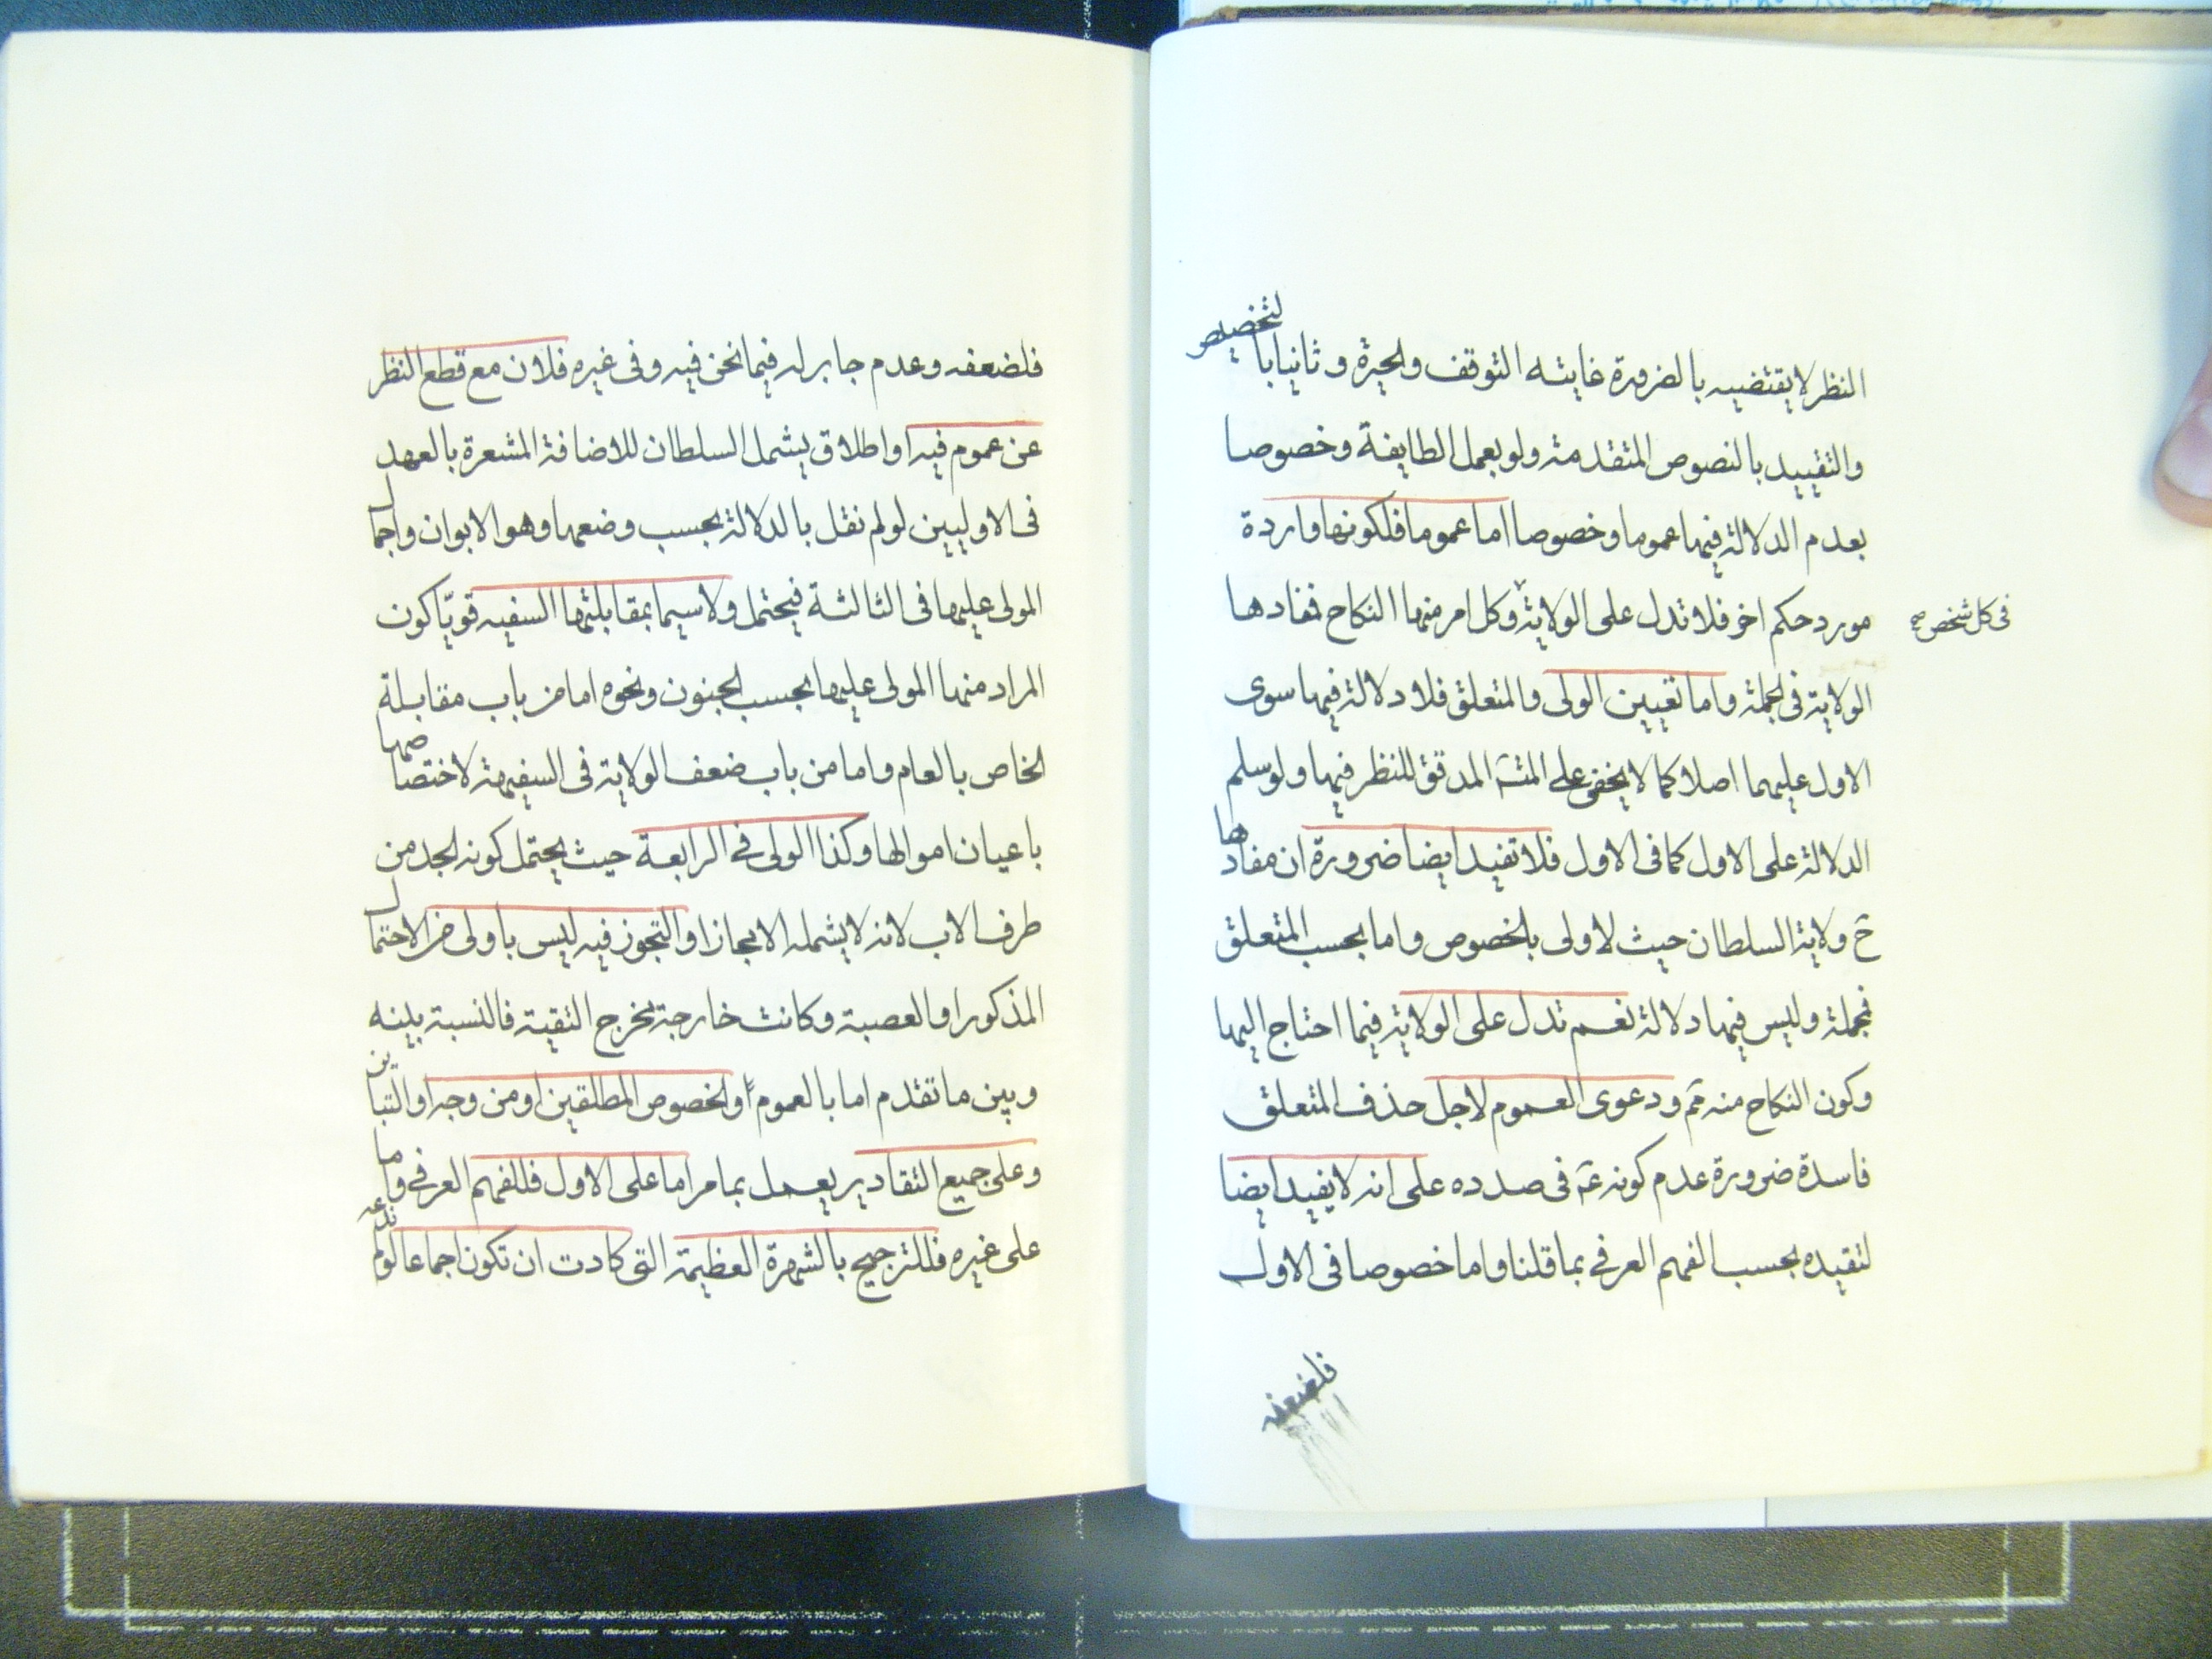 النظر لا يقتضيه بالضرورة غايته التوقف والحيرة وثانيا بالتخصيص
والتقييد بالنصوص المتقدمة ولو بعمل الطايفة وخصوصا
بعدم الدلالة فيها عموما وخصوصا اما عموما فلكونها واردة
مورد حكم اخر فلا تدل على الولاية وكل امر منها النكاح فمفادها
في كل شخص
الولاية فى الجملة واما تعيين الولى والمتعلق فلا دلالة فيها سوى
الاول عليهما اصلا كما لا يخفى على المدقق للنظر فيها ولو سلم
الدلالة على الاول كما فى الاول فلا تفيد ايضا ضرورة ان مفادها
ح ولاية السلطان حيث لا ولى بالخصوص واما بحسب المتعلق
فمجملة وليس فيها دلالة نعم تدل على الولاية فيما احتاج اليها
وكون النكاح منه مم ودعوى العموم لاجل حذف المتعلق
فاسدة ضرورة عدم كونه فى صدده على انه لا يفيد ايضا
لتقيده بحسب الفهم العرفي بما قلنا واما خصوصا فى الاول
فلضعفه
فلضعفه وعدم جابر له فيما نحن فيه وفى غيره فلان مع قطع النظر
عن عموم فيه او اطلاق يشمل السلطان للاضافة المشعرة بالعهد
فى الاوليين لو لم نقل بالدلالة بحسب وضعها وهو الابوان واجمال
المولى عليها فى الثالثة فيحتمل ولا سيما بمقابلتها السفيه قويّا كون
المراد منها المولى عليها بحسب الجنون ونحوه اما من باب مقابلة
الخاص بالعام واما من باب ضعف الولاية فى السفيهة لاختصاصها
باعيان اموالها وكذا الولى في الرابعة حيث يحتمل كونه الجد من
طرف الاب لانه لا يشمله الا مجازا والتجوز فيه ليس باولى من الاحتمال
المذكور او العصبة وكانت خارجة مخرج التقية فالنسبة بينه
وبين ما تقدم اما بالعموم والخصوص المطلقين او من وجه او التباين
وعلى جميع التقادير يعمل بما مر اما على الاول فللفهم العرفي واما
على غيره فللترجيح بالشهرة العظيمة التى كادت ان تكون اجماعا